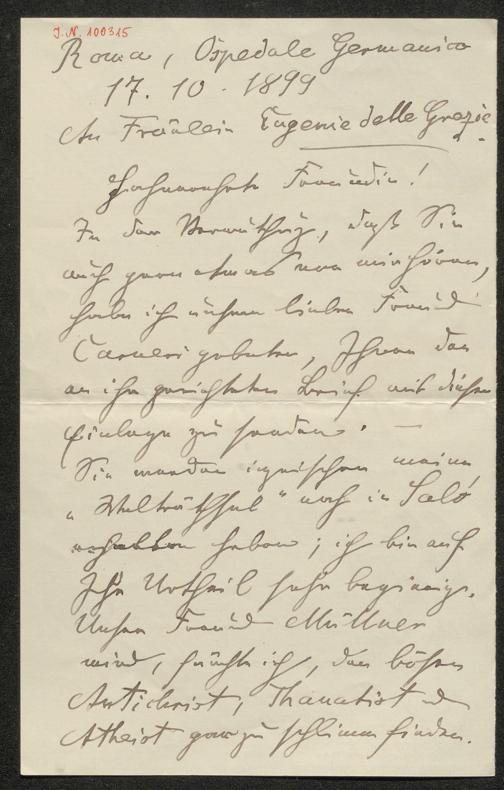 J.N. 100315
Roma, Ospedale Germanico
17. 10. 1899
An Fräulein Eugenie delle Grazie
Hochverehrte Freundin!
In der Vermuthung, daß Sie
auch gern etwas von mir hören,
habe ich unsern lieben Freund
Carneri gebeten, Ihnen den
an ihn gerichteten Brief mit dieser
Einlage zu senden. —
Sie werden inzwischen meine
„Welträthsel“ auch in Salò
erhalten haben; ich bin auf
Ihr Urtheil sehr begierig.
Unser Freund Müllner
wird, fürchte ich, den bösen
Antichrist, Thanatist u
Atheist gar zu schlimm finden.